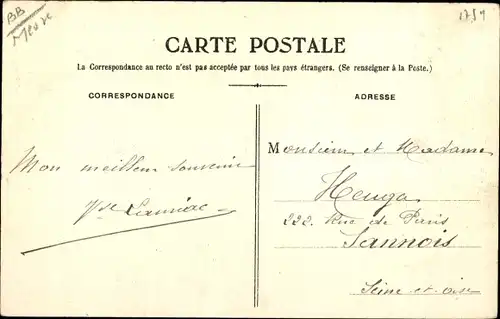 BB
Meuse
1759
CARTE POSTALE
La Correspondance au recto n'est pas acceptée par tous les pays étrangers. (Se renseigner à la Poste.)
CORRESPONDANCE
Mon meilleur souvenir
ADRESSE
Monsieur et Madame
Heuga
222 Rue de Paris
Sannois
Seine et oise